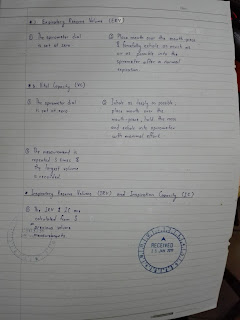 Expiratory Reserve Volume (ERV)
① The spirometer dial
is set at zero
② Place mouth over the mouth piece
& forcibly exhale as much air
as possible into the
spirometer after a normal
expiration.
Vital Capacity (VC)
① The spirometer dial
is set at zero
② Inhale as deeply as possible,
place mouth over the
mouth-piece, hold the nose
and exhale into spirometer
with maximal effort.
③ The measurement is
repeated 3 times &
the largest volume
is recorded
Inspiratory Reserve Volume (IRV) and Inspiratory Capacity (IC)
① The IRV & IC are
calculated from
previous volume
measurements
RECEIVED